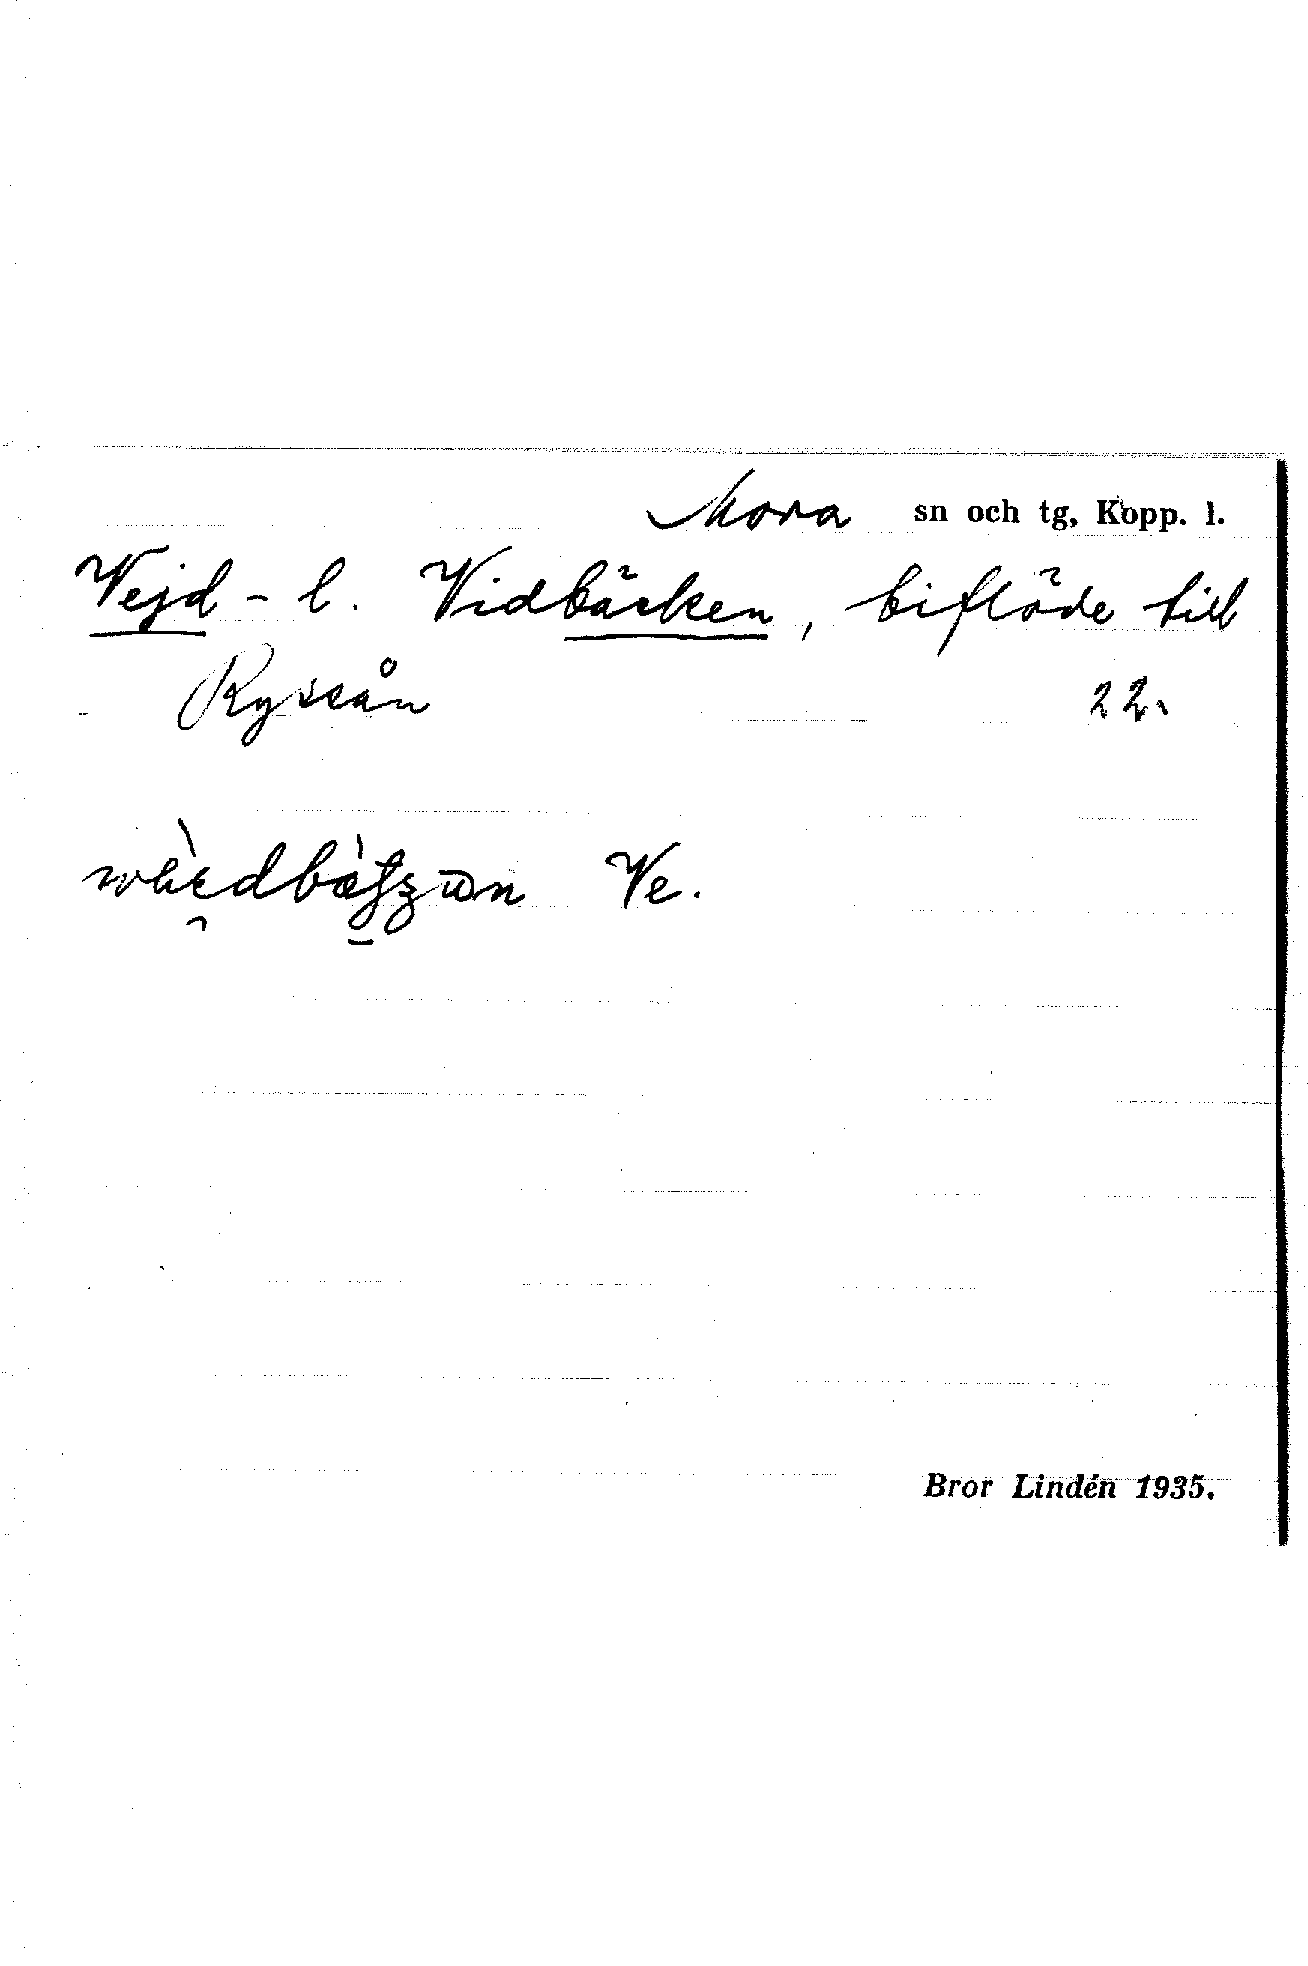 Mora sn och tg, Kopp. l.
Vejd - l. Vidbäcken, biflöde till
Rysån 22.
Ve.
Bror Lindén 1935.